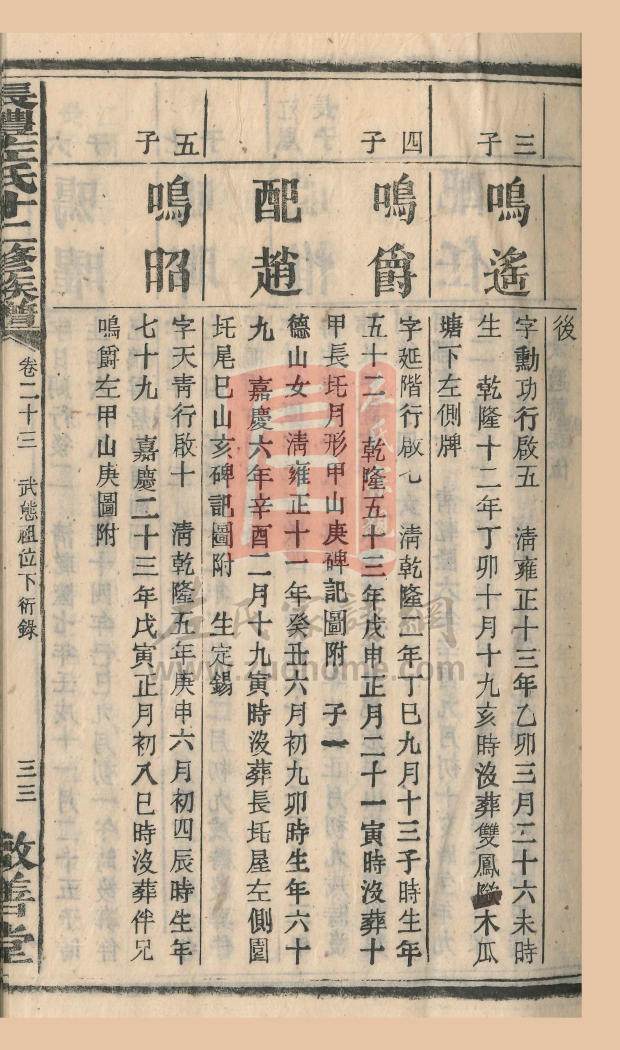 後
三子
鳴遙
字勳功行啟五 清雍正十三年乙卯三月二十六未時
生 乾隆十二年丁卯十月十九亥時沒葬雙鳳 木瓜
塘下左側牌
四子
鳴爵
字延階行啟七 清乾隆二年丁巳九月十三子時生年
五十二 乾隆五十三年戊申正月二十一寅時沒葬十
甲長圫月形甲山庚碑記圖附 子一
配趙
德山女 清雍正十一年癸丑六月初九卯時生年六十
九 嘉慶六年辛酉二月十九寅時沒葬長圫屋左側園
圫尾巳山亥碑記圖附 生定錫
五子
鳴昭
字天青行啟十 清乾隆五年庚申六月初四辰時生年
七十九 嘉慶二十三年戊寅正月初八巳時沒葬伴兄
鳴爵左甲山庚圖附
長澧左氏十二修族譜
卷二十三 武態祖位下衍錄
三三
敬善堂
左氏家譜網
www.zuohome.com